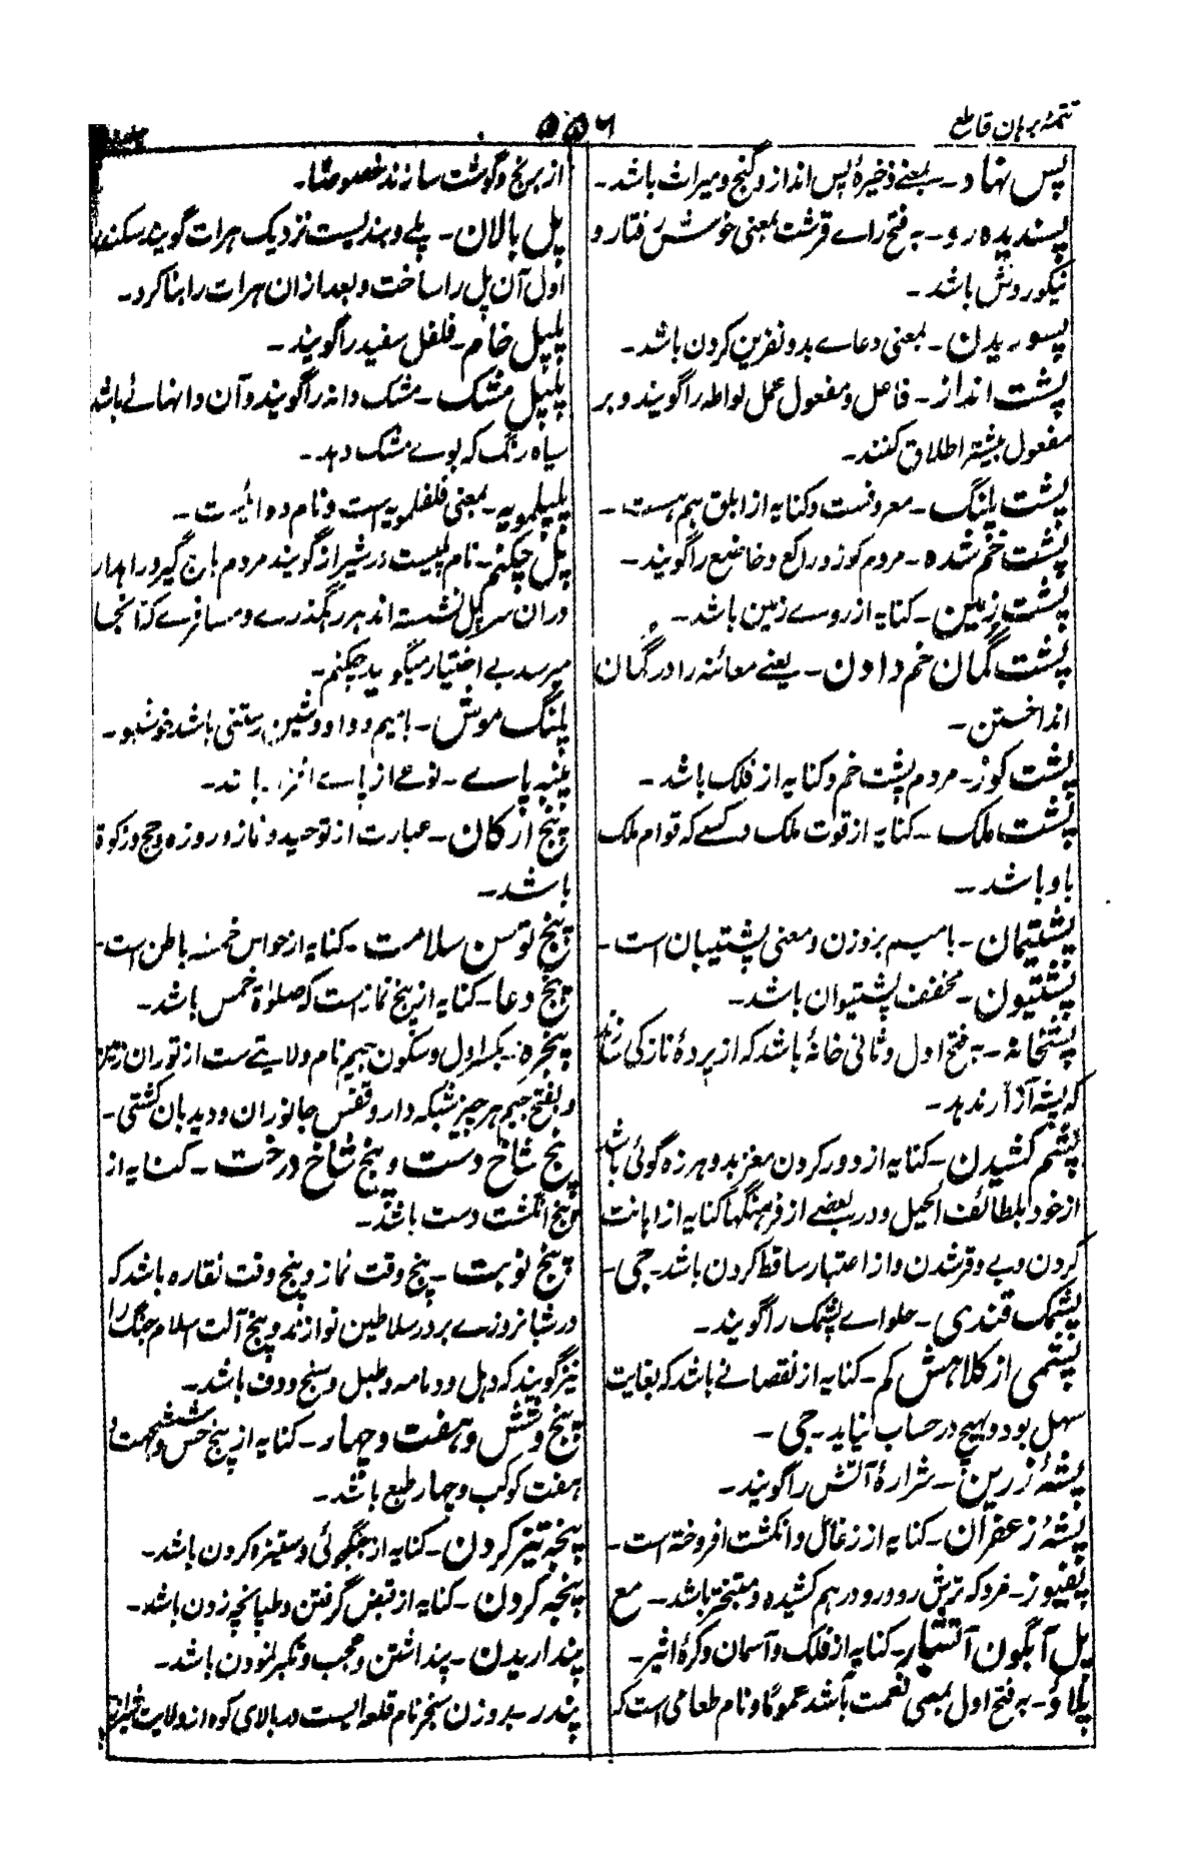 تتمهٔ برهان قاطع
۵۵۶
پس نهاد۔ بمعنے ذخیرهٔ پس انداز و گنج و میراث باشد۔
پسندیده رو۔ به فتح راے قرشت بمعنی خوش رفتار و
نیکو روش باشد۔
پسوریدن۔ بمعنی دعاے بد و نفرین کردن باشد۔
پشت انداز۔ فاعل و مفعول عمل لواطه را گویند و بر
مفعول بیشتر اطلاق کنند۔
پشت پلنگ۔ معروفست و کنایه از ابلق هم هست۔
پشت خم شده۔ مردم کوز و راکع و خاضع را گویند۔
پشت زمین۔ کنایه از روے زمین باشد۔
پشت گمان خم دادن۔ یعنے معائنه را در گمان
انداختن۔
پشت کوز۔ مردم پشت خم و کنایه از فلک باشد۔
پشت ملک۔ کنایه از قوت ملک و کسے که قوام ملک
باو باشد۔
پشتیمان۔ با میم بر وزن و معنی پشتیبان است۔
پشتیون۔ مخفف پشتیوان باشد۔
پشه‌خانه۔ به فتح اول و ثانی خانهٔ باشد که از پردهٔ نازکی
که پشه آزار ندهد۔
پشم کشیدن۔ کنایه از دور کردن مغز بد و هرزه گوئی باشد
از خود بلطائف الحیل و در بعضے از فرهنگها کنایه از اهانت
کردن و بے وقر شدن و از اعتبار ساقط کردن باشد۔ جی۔
پشمک قندی۔ حلواے پشمک را گویند۔
پشمی از کلاهش کم۔ کنایه از نقصانے باشد که بغایت
سهل بود و هیچ در حساب نیاید۔ جی۔
پشهٔ زرین۔ شرارهٔ آتش را گویند۔
پشهٔ زعفران۔ کنایه از زغال و انگشت افروخته است۔
پفیوز۔ مردکه ترش رو و رو در هم کشیده و متبختر باشد۔ مع
پل آبگون آتشبار۔ کنایه از فلک و آسمان و کرهٔ اثیر۔
پلاؤ۔ به فتح اول بمعنی نعمت باشد عموماً و نام طعامی است که
از برنج و گوشت سازند خصوصاً۔
پل بالان۔ پلے و بندیست نزدیک هرات گویند سکندر
اول آن پل را ساخت و بعد ازان هرات را بنا کرد۔
پلپل خام۔ فلفل سفید را گویند۔
پلپل مشک۔ مشک دانه را گویند و آن دانهائے باشد
سیاه رنگ که بوے مشک دهد۔
پلپلمویه۔ بمعنی فلفلمویه است و نام دوائیست۔
پل چکنم۔ نام پلیست در شیراز گویند مردم باج گیر و راهدار
دران سر پل نشسته اند هر رهگذرے و مسافرے که آنجا
میرسد بے اختیار میگوید چکنم۔
پلنگ موش۔ با میم و واو و شین رستنی باشد خوشبو۔
پنبه پاے۔ نوعے از پاے افزار باشد۔
پنج ارکان۔ عبارت از توحید و نماز و روزه و حج و زکوة
باشد۔
پنج توسن سلامت۔ کنایه از حواس خمسه باطن است۔
پنج دعا۔ کنایه از پنج نماز است که صلوٰة خمس باشد۔
پنجره۔ بکسر اول و سکون جیم نام ولایتے ست از توران زمین
و بفتح جیم هر چیز شبکه دار و قفس جانوران و دیدبان کشتی۔
پنج شاخ دست و پنج شاخ درخت۔ کنایه از
پنج انگشت دست باشد۔
پنج نوبت۔ پنج وقت نماز و پنج وقت نقاره باشد که
در شبانروزے بر در سلاطین نوازند و پنج آلت اسلام جنگ را
نیز گویند که دهل و دمامه و طبل و سنج و دف باشد۔
پنج و شش و هفت و چهار۔ کنایه از پنج حس و شش جهت و
هفت کوکب و چهار طبع باشد۔
پنجه تیز کردن۔ کنایه از جنگجوئی و ستیزه کردن باشد۔
پنجه کردن۔ کنایه از قبض گرفتن و طپانچه زدن باشد۔
پنداریدن۔ پنداشتن و عجب و تکبر نمودن باشد۔
پندر۔ بر وزن سنجر نام قلعه ایست در بالای کوه از ولایت